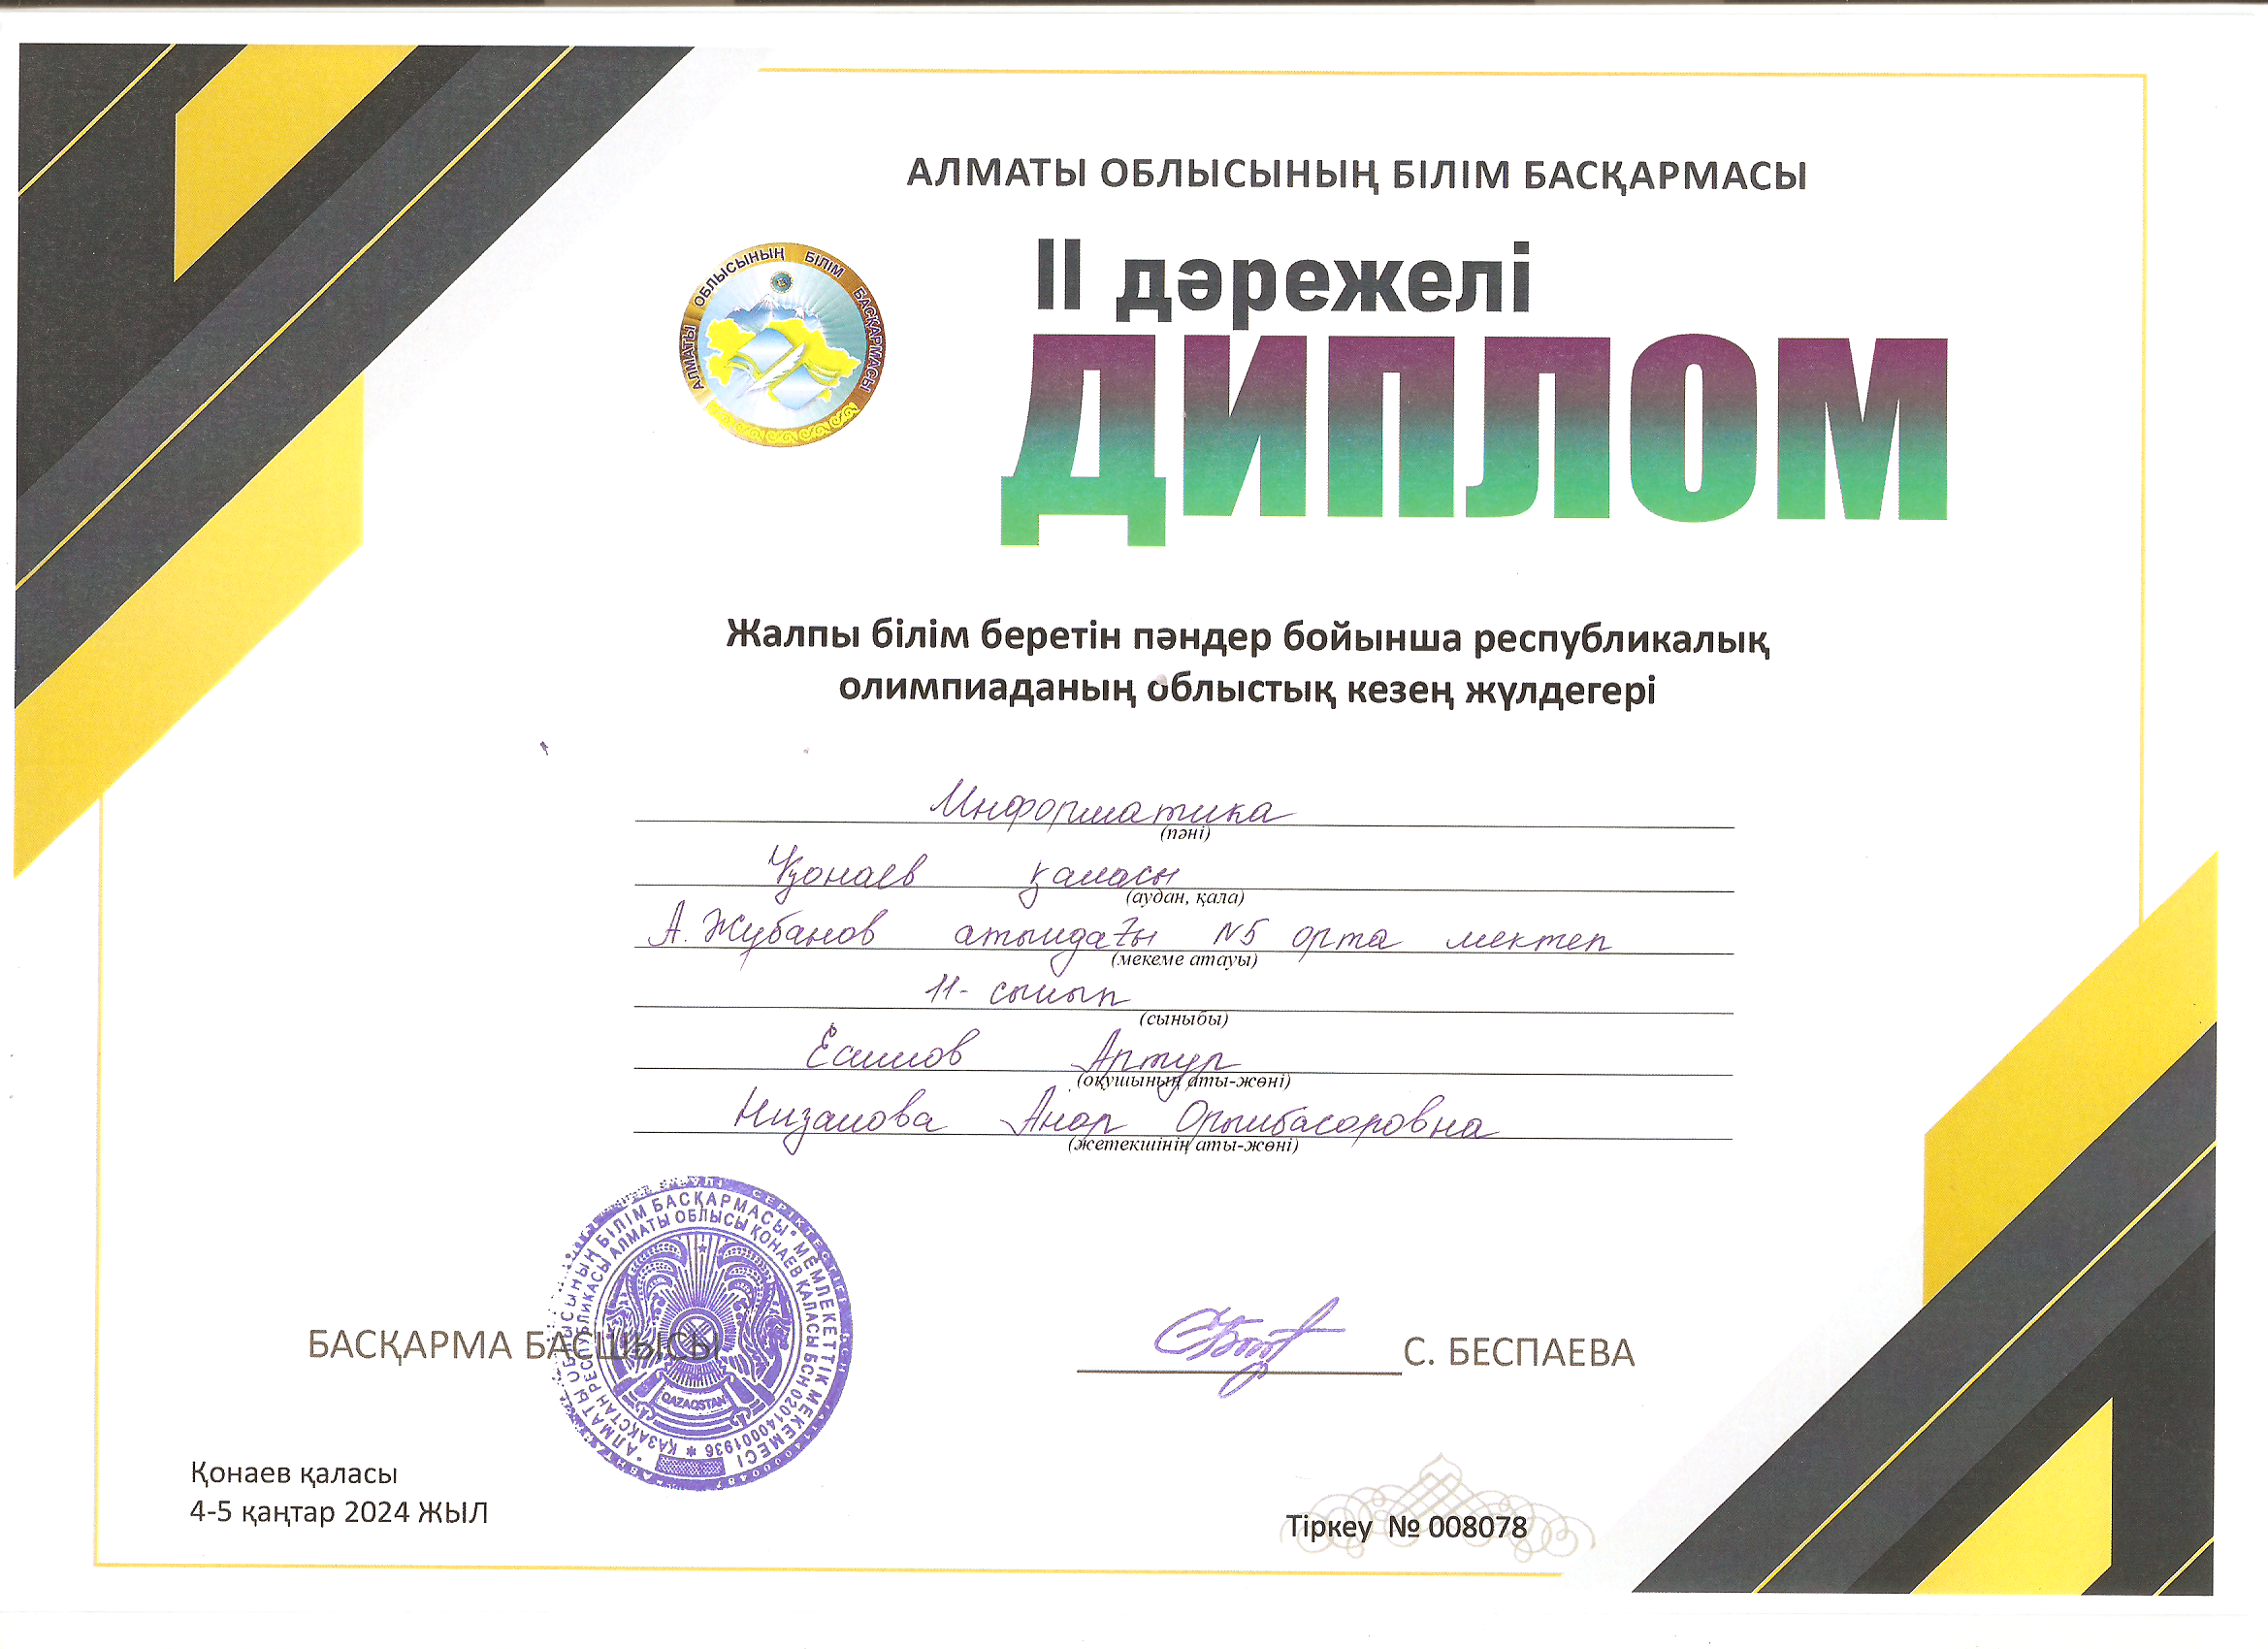 АЛМАТЫ ОБЛЫСЫНЫҢ БІЛІМ БАСҚАРМАСЫ
АЛМАТЫ ОБЛЫСЫНЫҢ БІЛІМ БАСҚАРМАСЫ
II дәрежелі
ДИПЛОМ
Жалпы білім беретін пәндер бойынша республикалық
олимпиаданың облыстық кезең жүлдегері
Информатика
(пәні)
Қонаев қаласы
(аудан, қала)
А. Жубанов атындағы №5 орта мектеп
(мекеме атауы)
11- сынып
(сыныбы)
Есимов Артур
(оқушының аты-жөні)
Низамова Анар Орымбасаровна
(жетекшінің аты-жөні)
"АЛМАТЫ ОБЛЫСЫНЫҢ БІЛІМ БАСҚАРМАСЫ" МЕМЛЕКЕТТІК МЕКЕМЕСІ
ҚАЗАҚСТАН РЕСПУБЛИКАСЫ АЛМАТЫ ОБЛЫСЫ ҚОНАЕВ ҚАЛАСЫ БСН 020140001936
QAZAQSTAN
БАСҚАРМА БАСШЫСЫ
С. БЕСПАЕВА
Қонаев қаласы
4-5 қаңтар 2024 ЖЫЛ
Тіркеу № 008078